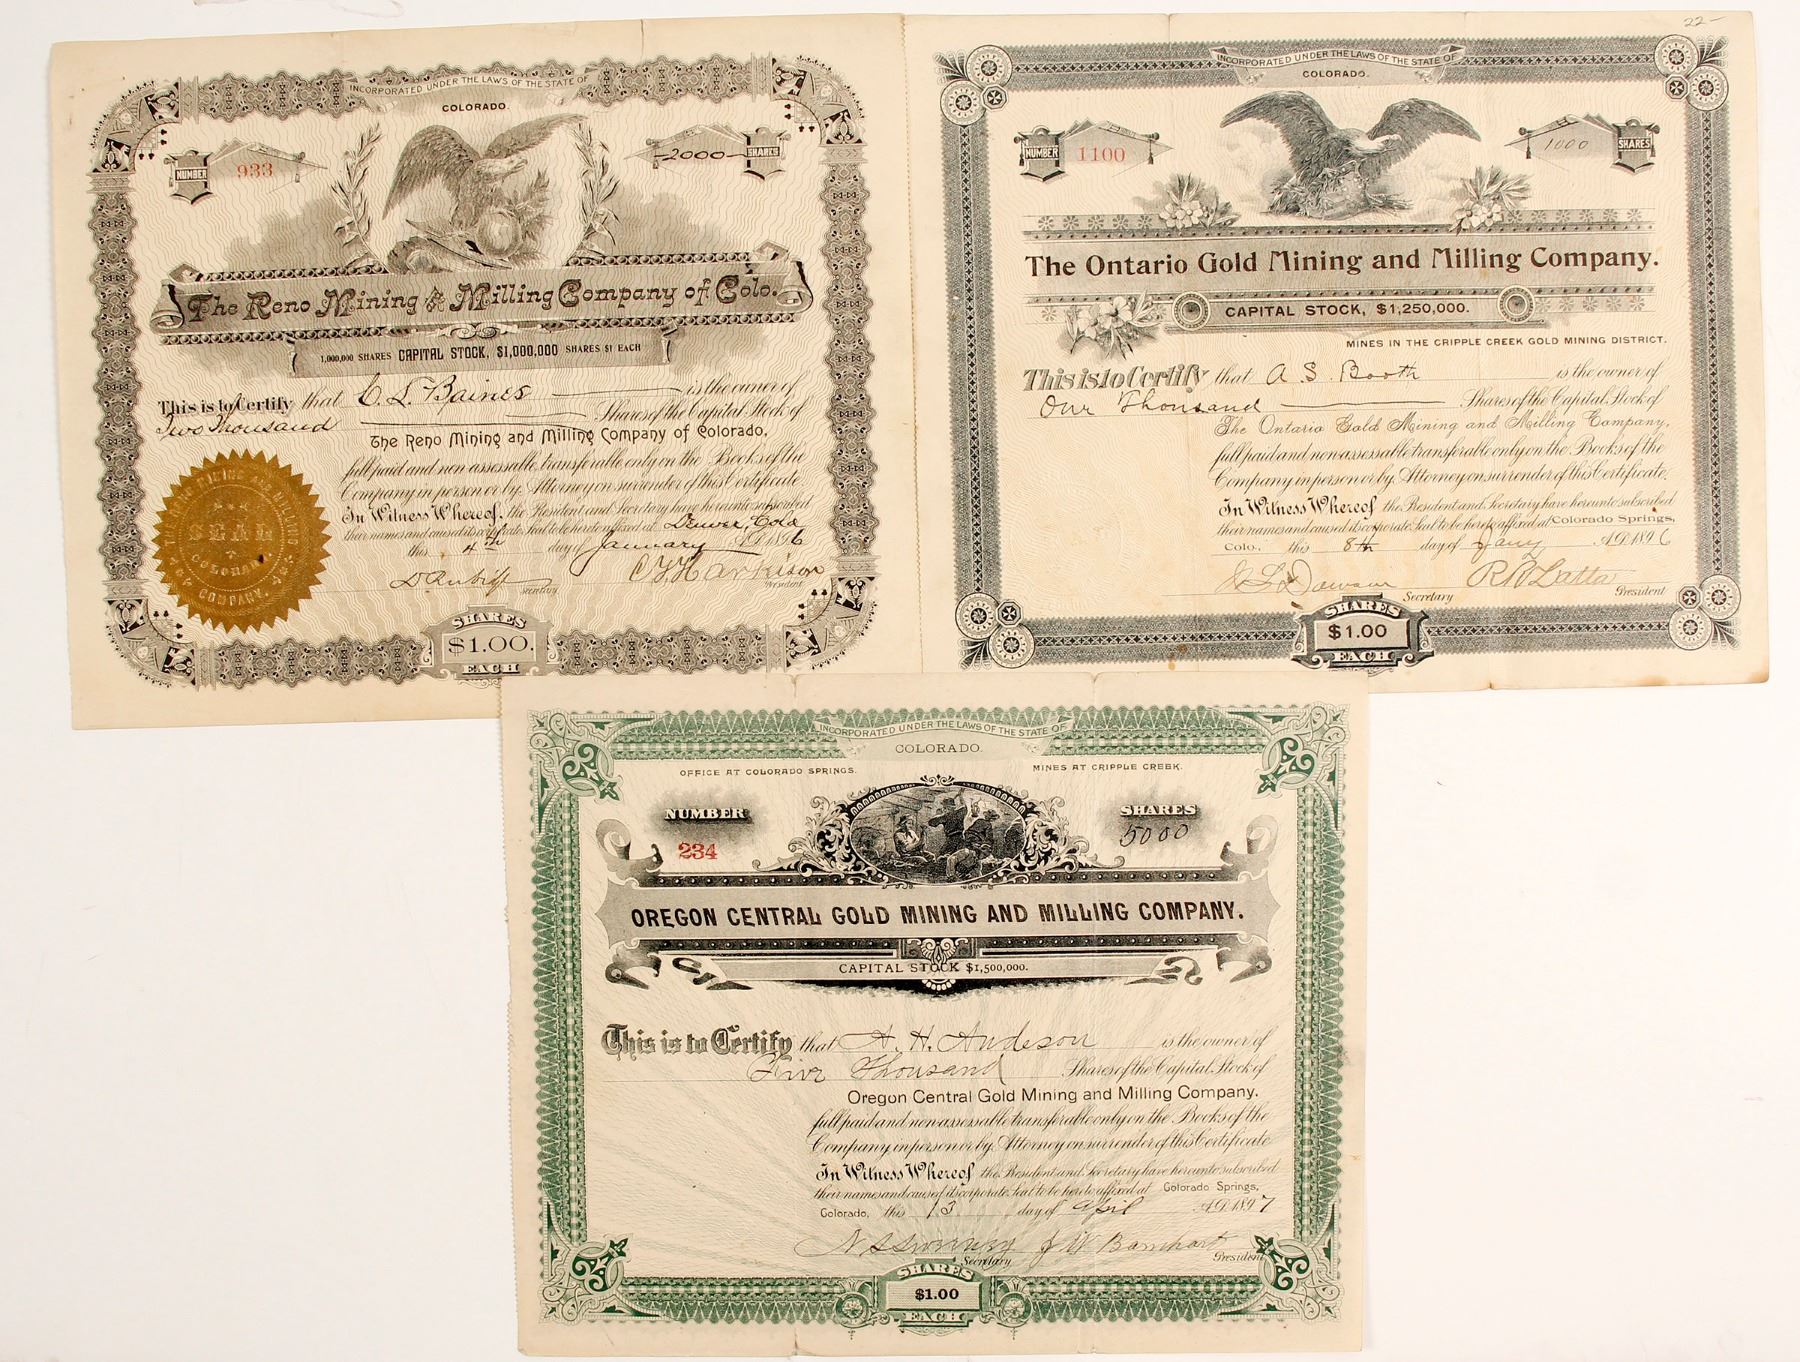 INCORPORATED UNDER THE LAWS OF THE STATE OF
COLORADO.
NUMBER
933
2000
SHARES
The Reno Mining & Milling Company of Colo.
1,000,000 SHARES CAPITAL STOCK, $1,000,000 SHARES $1 EACH
This is to Certify that C. L. Baines is the owner of
Two Thousand Shares of the Capital Stock of
The Reno Mining and Milling Company of Colorado,
full paid and non assessable transferable only on the Books of the
Company in person or by Attorney on surrender of this Certificate.
In Witness Whereof, the President and Secretary have hereunto subscribed
their names and caused its corporate Seal to be hereto affixed at Denver, Colo
this 4th day of January A.D. 1896
Secretary
President
SEAL
COLORADO
COMPANY.
SHARES
$1.00.
EACH
22-
INCORPORATED UNDER THE LAWS OF THE STATE OF
COLORADO.
NUMBER
1100
1000
SHARES
The Ontario Gold Mining and Milling Company.
CAPITAL STOCK, $1,250,000.
MINES IN THE CRIPPLE CREEK GOLD MINING DISTRICT.
This is to Certify that A. S. Booth is the owner of
One Thousand Shares of the Capital Stock of
The Ontario Gold Mining and Milling Company,
full paid and non assessable transferable only on the Books of the
Company in person or by Attorney on surrender of this Certificate.
In Witness Whereof, the President and Secretary have hereunto subscribed
their names and caused its corporate Seal to be hereto affixed at Colorado Springs,
Colo., this 8th day of Jany A.D. 1896
Dawson
Secretary
President
SHARES
$1.00
EACH
INCORPORATED UNDER THE LAWS OF THE STATE OF
COLORADO.
OFFICE AT COLORADO SPRINGS.
MINES AT CRIPPLE CREEK.
NUMBER
234
SHARES
5000
OREGON CENTRAL GOLD MINING AND MILLING COMPANY.
CAPITAL STOCK $1,500,000.
This is to Certify that A. H. Andeson is the owner of
Five Thousand Shares of the Capital Stock of
Oregon Central Gold Mining and Milling Company.
full paid and non assessable transferable only on the Books of the
Company in person or by Attorney on surrender of this Certificate
In Witness Whereof, the President and Secretary have hereunto subscribed
their names and caused its corporate Seal to be hereto affixed at Colorado Springs,
Colorado, this 13 day of April A.D. 1897
J W Barnhart
Secretary
President
SHARES
$1.00
EACH